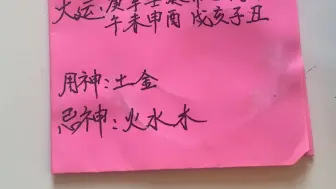 大运:庚辛壬癸
午未申酉戌亥子丑
用神:土金
忌神:火水木